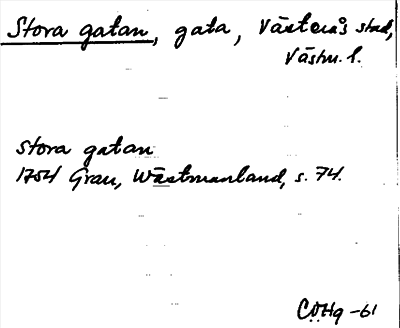 Stora gatan, gata, Västerås stad,
Västm. l.
Stora gatan
1754 Grau, Wästmanland, s. 74.
CÖHg -61